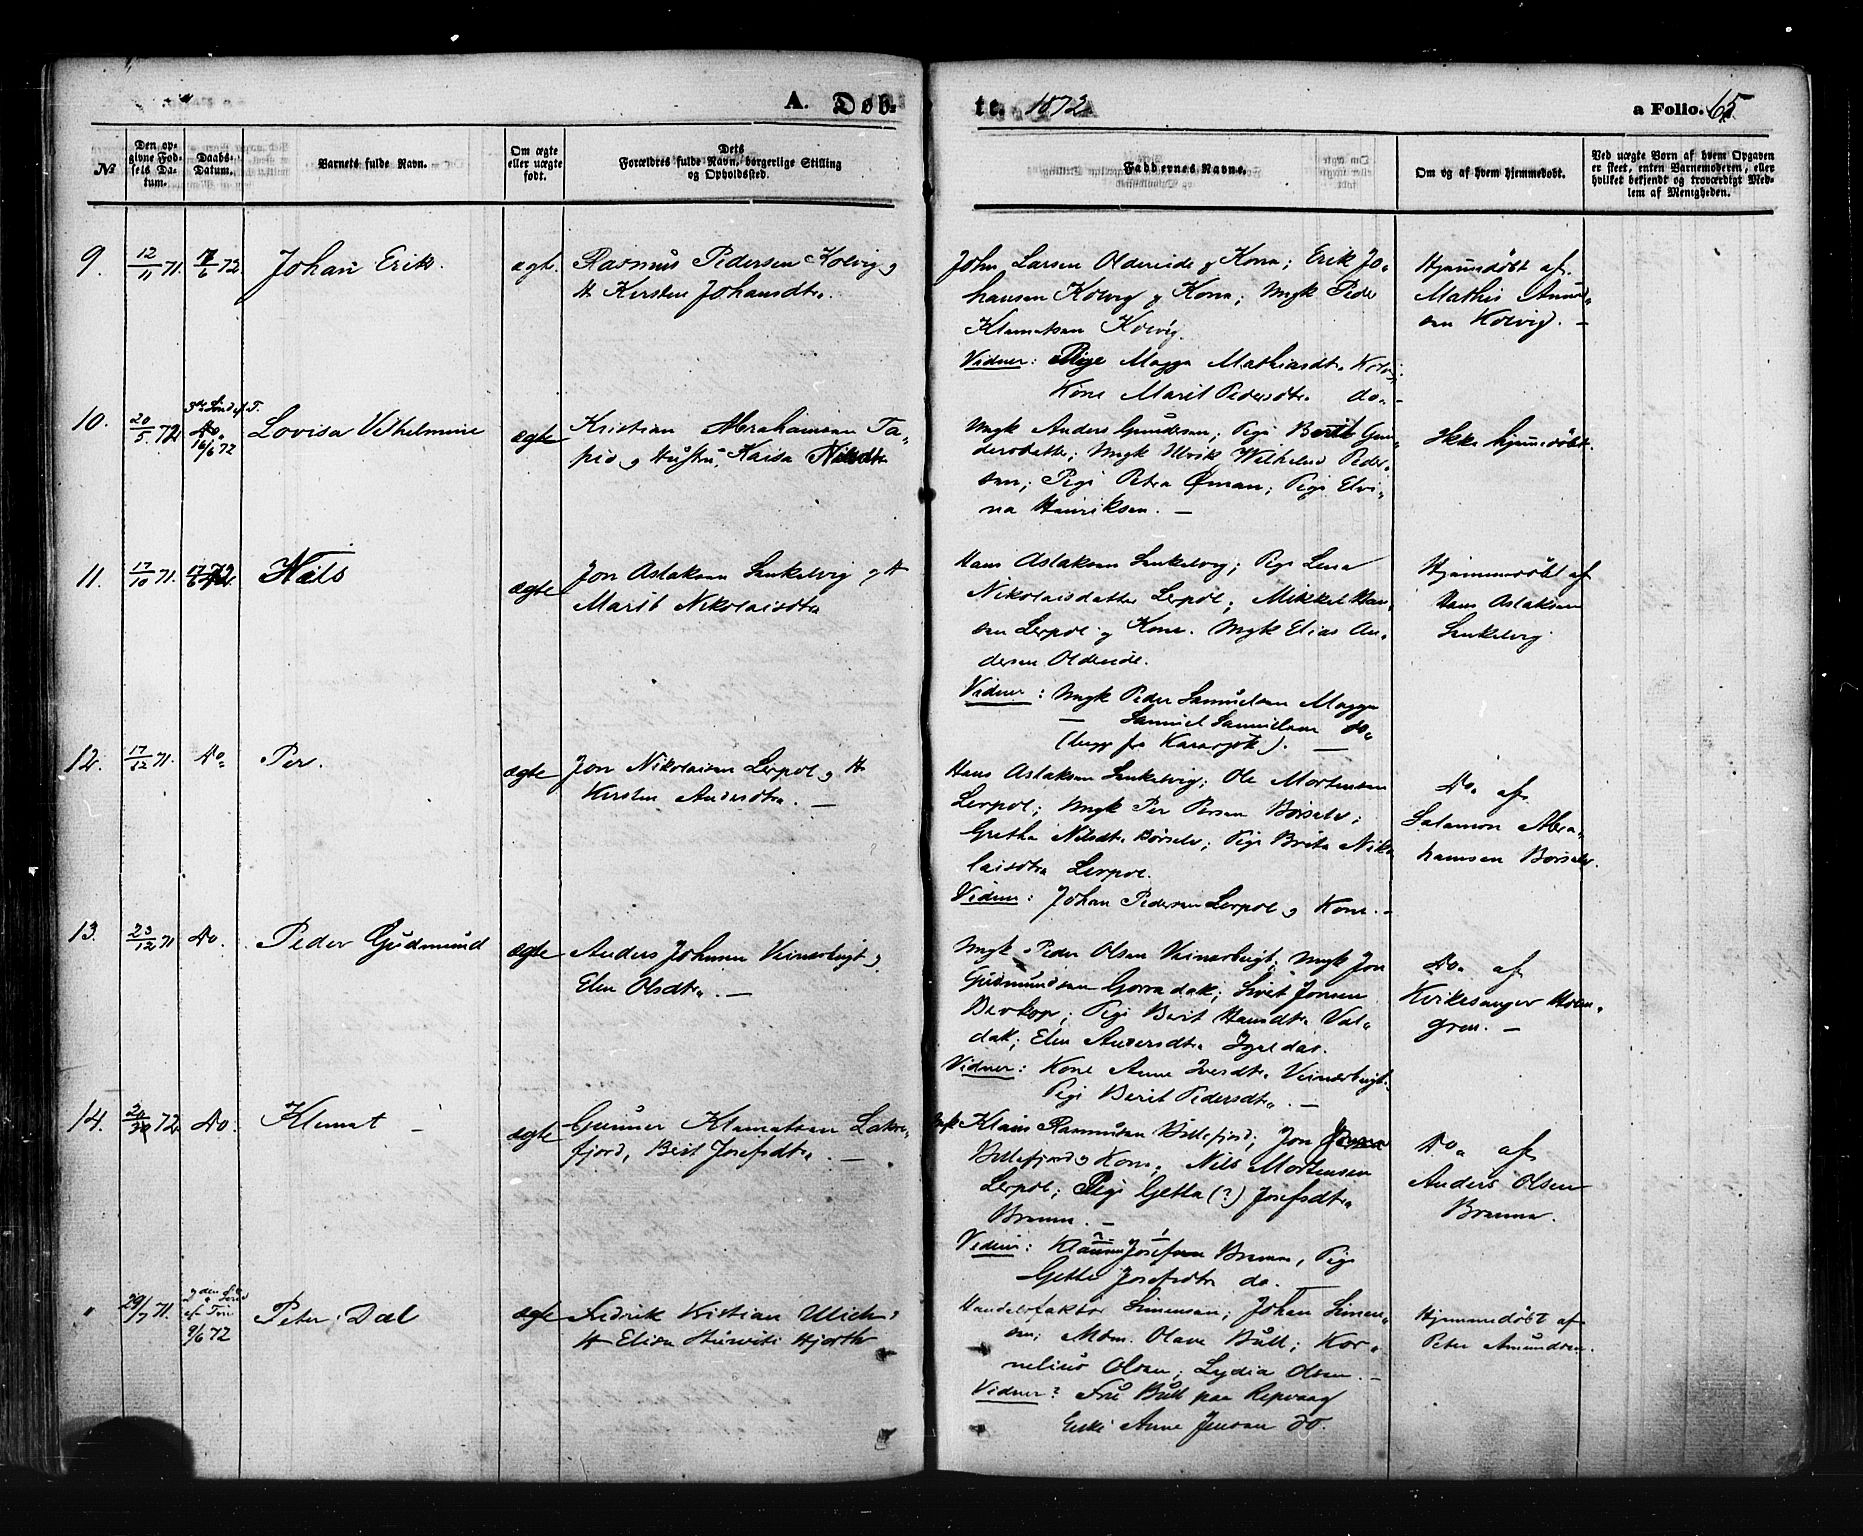 A. Døb-
te. 1872
a Folio. 65
№
Den op-
givne Fød-
sels Da-
tum.
Daabs-
Datum.
Barnets fulde Navn.
Om ægte
eller uægte
født.
Dets
Forældres fulde Navn, borgerlige Stilling
og Opholdssted.
Faddernes Navne.
Om og af hvem hjemmedøbt.
Ved uægte Børn af hvem Opgaven
er skeet, enten Barnemoderen, eller
hvilket bekjendt og troværdigt Med-
lem af Menigheden.
9. 12/11 71. /6 72. Johan Erik. ægt.
Rasmus Pedersen Kolvig og
H Kirsten Johansdtr.
John Larsen Oldereide og Kona; Erik Jo-
hansen Kolvig og Kona; Ungk Peder
Klemetsen Kolvig.
Vidner: Pige Magga Mathiasdtr Kolvig
Kone Marit Pedersdtr do -
Hjemmedøbt af
Mathis Amund-
sen Kolvig. -
10. 20/5 72 3die Sønd ef T. Do. 16/6 72 Lovisa Vilhelmine ægte
Kristian Abrahamsen Ta-
pio og Hustru, Kaisa Nilsdtr
Ungk Anders Gundersen; Pige Berit Gun-
dersdatter; Ungk Ulrik Wilhelm Peder-
sen; Pige Petra Öman; Pige Elvi-
na Henriksen. -
Ikke hjemmedøbt.
11. 17/10 71. 17/6 72 Nils ægte
Jon Aslaksen Smukelvig og H
Marit Nikolaisdtr
Hans Aslaksen Smukelvig; Pige Lena
Nikolaisdatter Lerpol; Mikkel Han-
sen Lerpol og Kone. Ungk Elias An-
dersen Oldereide.
Vidner: Ungk Peder Samuelsen Magga
- Samuel Samuelsen do
(begge fra Karasjok). -
Hjemmedøbt af
Hans Aslaksen
Smukelvig.
12. 17/12 71. Do. Per. ægte
Jon Nikolaisen Lerpol og H
Kirsten Andersdtr. -
Hans Aslaksen Smukelvig; Ole Mortensen
Lerpol; Ungk Per Persen Børselv;
Gretha Nilsdtr Børselv; Pige Brita Niko
laisdtr Lerpol.
Vidner: Johan Pedersen Lerpol og Kone. -
Do. af
Salamon Abra-
hamsen Børselv.
13. 23/12 71 Do. Peder Gudmund ægte
Anders Johnsen Veinesbugt og
Elen Olsdtr. -
Ungk Peder Olsen Veinesbugt; Ungk Jon
Gudmundsen Gorradak; Sivet Jonsen
Berkop; Pige Berit Hansdtr Val-
dak; Elen Andersdtr Igeldas.
Vidner: Kone Anne Iversdtr Veinesbugt.
Pige Berit Pedersdtr. -
Do. af
Kirkesanger Holm-
gren. -
14. 72 Do. Klemet - ægte
Gunner Klemetsen Lakse-
fjord, Berit Josefsdtr. -
Ungk Klaus Rasmusen Billefjord; Jon Jonsen
Billefjord og Kone; Nils Mortensen
Lerpol; Pige Getta (?) Josefsdtr
Brenna. -
Vidner: Klaus Josefsen Brenna, Pige
Gette Josefsdtr do. -
Do. af
Anders Olsen
Brenna.
" 29/7 71. 2den Sønd ef Trin 9/6 72 Peter Dal ægte
Fredrik Kristian Ulich og
H Elisa Hjorth
Handelsfaktor Simensen; Johan Simen-
sen; Mdm. Olave Bull; Kor-
nelius Olsen; Lydia Olsen. -
Vidner? Fru Bull paa Repvaag
Enke Anne Jensen do.
Hjemmedøbt af
Peter Amundsen.